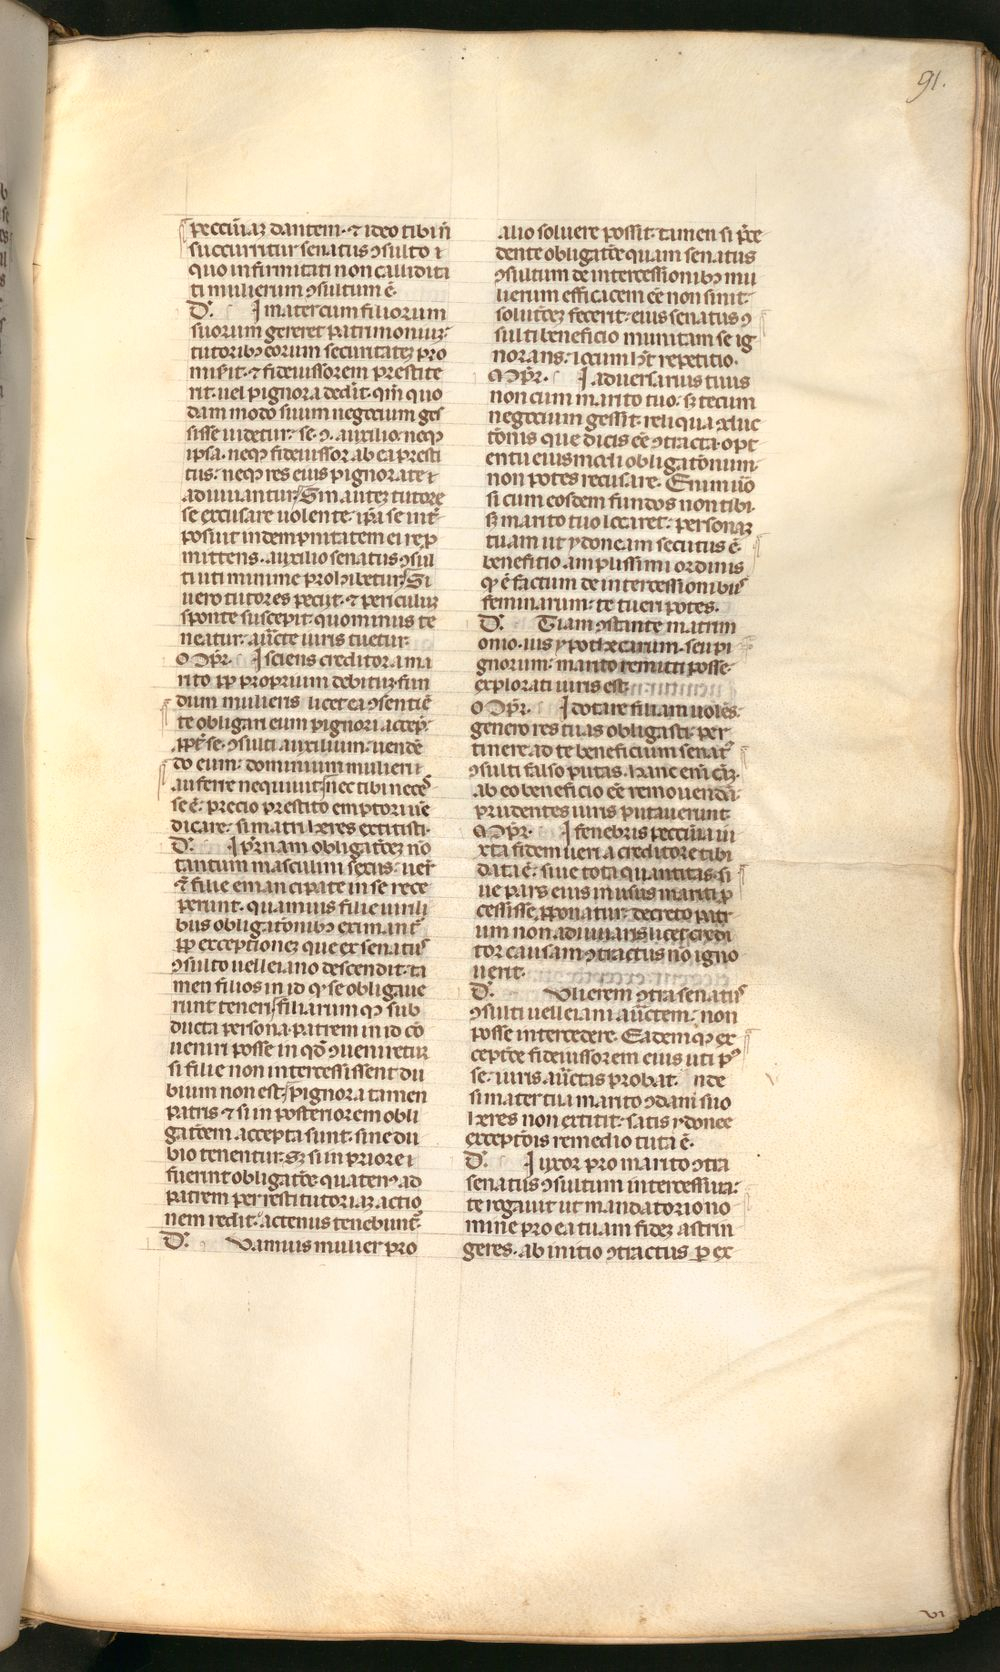 91.
pecc̄uiaꝫ dantem· ⁊ ideo tibi n̄
succurritur senatus ꝯsulto ⁊
quo infirmitati non callidita
ti mulierum ꝯsultum ē·
D̄· I mater cum filiorum
suorum gereret patrimoniuꝫ·
tutoribꝫ eorum securitateꝫ pro
misit· ⁊ fideiussorem prestite
rit· uel pignora dedit· qm̄ quo
dam modo suum negocium ges
sisse uidetur· se· ꝯ· auxilio· neqꝫ
ipsa· neqꝫ fideiussor ab ea presti
tus· neqꝫ res eius pignorate ⁊
adiuuantur· Sin auteꝫ tutore
se excusare uolente· ip̄a se int̄
posuit indempnitatem ei rep̄
mittens· auxilio senatus ꝯsul
ti uti minime prohibetur· Si
uero tutores peciit· ⁊ periculuꝫ
sponte suscepit· quominus te
neatur· auc̄te iuris tuetur·
Ip̄r· I sciens creditor a ma
rito pp̄ proprium debituꝫ fun
dum mulieris licet ea ꝯsentiē
te obligari eum pignori accep̄·
pp̄t se· ꝯsulti auxilium· uendē
do eum· dominium mulieri
auferre nequiuit· nec tibi neces̄
se ē· precio prestito emptori uē
dicare· si matri heres extitisti·
D̄· I p̄rnam obligat̄oeꝫ nō
tantum masculini sexus· uer̄
⁊ filie emancipate in se rece
perunt· quamuis filie uirili
bus obligat̄onibꝫ eximant̄
pp̄ exceptioneꝫ que ex senatus̄
ꝯsulto uelleiano descendit· ta
men filios in id qꝫ se obligaue
runt teneri· filiarum qꝫ sub
ducta persona· patrem in id cō
ueniri posse in qd̄ ꝯueniretur
si filie non intercessissent du
bium non est· pignora tamen
patris ⁊ si in posteriorem obli
gat̄oem accepta sunt· sine du
bio tenentur· sꝫ si in priore ⁊
fuerint obligat̄oe· quatenꝰ ad
patrem per restitutoriaꝫ actio
nem redit· actenus tenebunt̄·
D̄· Vamuis mulier pro
alio soluere possit· tamen si p̄ce
dente obligat̄oe quam senatus
ꝯsultum de intercessionibꝫ mu
lierum efficacem ēe non sinit·
solut̄oeꝫ fecerit· eius senatus ꝯ
sulti beneficio munitam se ig
norans· locum h̄t repetitio·
Ip̄r· I aduersarius tuus
non cum marito tuo· sꝫ tecum
negocium gessit· reliqua xluc
t̄onis que dicis ēe ꝯtracta· opt
entu eiusmodi obligat̄onum
non potes recusare· Enim uō
si cum eosdem fundos non tibi·
sꝫ marito tuo locaret· personaꝫ
tuam ut ydoneam secutus ē·
benefitio amplissimi ordinis
qꝫ ē factum de intercessionibus̄
feminarum· te tueri potes·
D̄· Tiam ꝯstante matrim
onio· ius ypothecarum· seu pi
gnorum· marito remitti posse·
explorati iuris est·
Ip̄r· I dotare filiam uolēs·
genero res tuas obligasti· per
tinere ad te beneficium senat̄
ꝯsulti falso putas· hanc em̄ cāꝫ·
ab eo beneficio ēe remouendā·
prudentes iuris putauerunt·
Ip̄r· I fenebris peccunia iu
xta fidem ueri a creditore tibi
data ē· siue tota quantitas· si
ue pars eius in usus mariti p̄
cessisse p̄ponatur· decreto patr
um non adiuuaris licet credi
tor causam ꝯtractus nō igno
uerit·
D̄· Vlierem ꝯtra senatus̄
ꝯsulti uelleiani auc̄tem· non
posse intercedere· Eadem qꝫ ex
cept̄oe fideiussorem eius uti pꝰ
se· iuris auc̄tas probat· nde
si mater tua marito ꝯdam suo
heres non extitit· satis ydonee
except̄ois remedio tuta ē·
D̄· I uxor pro marito ꝯtra
senatus ꝯsultum intercessura·
te rogauit ut mandatorio no
mine pro ea tuam fideꝫ astrin
geres· ab initio ꝯtractus p ex
VI